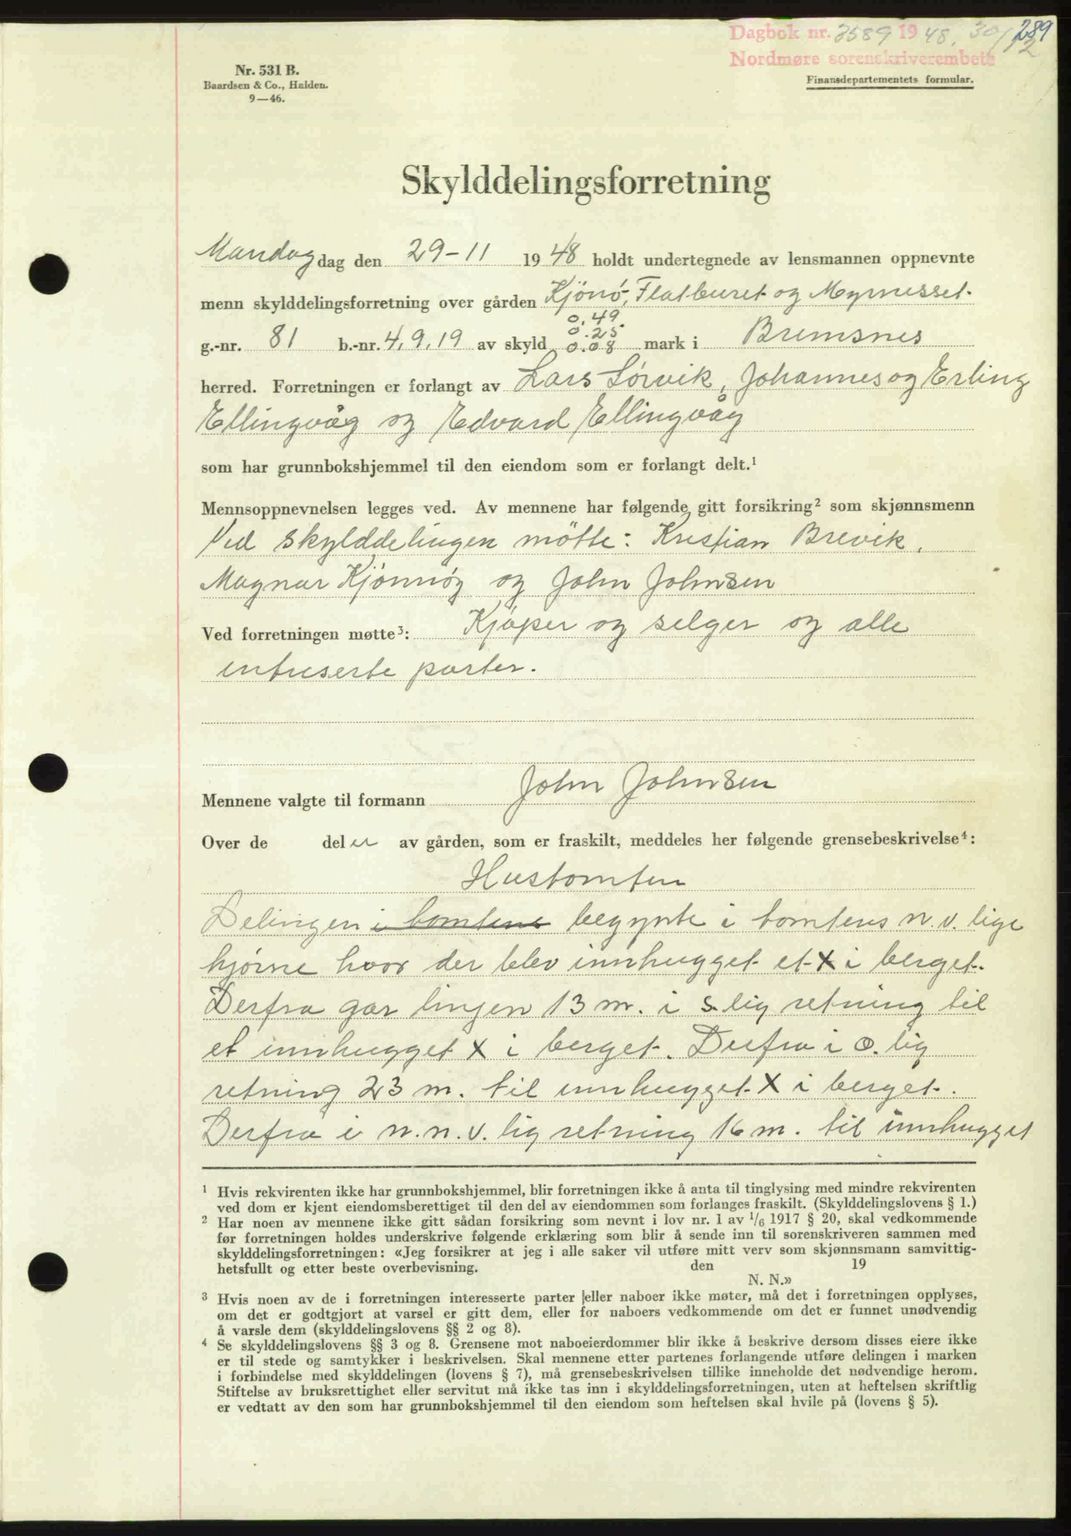 Dagbok nr. 3589 1948, 30/12
289
Nordmøre sorenskriverembete
Nr. 531 B.
Baardsen & Co., Halden.
9—46.
Finansdepartementets formular.
Skylddelingsforretning
Mandag dag den 29-11 1948 holdt undertegnede av lensmannen oppnevnte
menn skylddelingsforretning over gården Kjönö, Flatburet og Myrnesset.
g.-nr. 81 b.-nr. 4, 9, 19 av skyld 0,49 0.25 0.08 mark i Bremsnes
herred. Forretningen er forlangt av Lars Sørvik, Johannes og Erling
Ellingvåg og Edvard Ellingvåg
som har grunnbokshjemmel til den eiendom som er forlangt delt.¹
Mennsoppnevnelsen legges ved. Av mennene har følgende gitt forsikring² som skjønnsmenn
Ved skylddelingen mötte: Kristian Brevik,
Magnar Kjönnöy og John Johnsen
Ved forretningen møtte³: Kjöper og selger og alle
intreserte parter.
Mennene valgte til formann John Johnsen
Over de del er av gården, som er fraskilt, meddeles her følgende grensebeskrivelse⁴:
Hustomten
Delingen i tomtens begynte i tomtens n.v. lige
hjørne hvor der blev innhugget et X i berget.
Derfra går linjen 13 m. i s.lig retning til
et innhugget X i berget. Derfra i o. lig
retning 23 m. til innhugget X i berget.
Derfra i n.n.v. lig retning 16 m. til innhugget
¹ Hvis rekvirenten ikke har grunnbokshjemmel, blir forretningen ikke å anta til tinglysing med mindre rekvirenten
ved dom er kjent eiendomsberettiget til den del av eiendommen som forlanges fraskilt. (Skylddelingslovens § 1.)
² Har noen av mennene ikke gitt sådan forsikring som nevnt i lov nr. 1 av 1/6 1917 § 20, skal vedkommende
før forretningen holdes underskrive følgende erklæring som blir å sende inn til sorenskriveren sammen med
skylddelingsforretningen: «Jeg forsikrer at jeg i alle saker vil utføre mitt verv som skjønnsmann samvittig-
hetsfullt og etter beste overbevisning. den 19
N. N.»
³ Hvis noen av de i forretningen interesserte parter eller naboer ikke møter, må det i forretningen opplyses,
om det er godtgjort at varsel er gitt dem, eller for naboers vedkommende om det er funnet unødvendig
å varsle dem (skylddelingslovens §§ 2 og 8).
⁴ Se skylddelingslovens §§ 3 og 8. Grensene mot naboeierdommer blir ikke å beskrive dersom disses eiere ikke
er til stede og samtykker i beskrivelsen. Skal mennene etter partenes forlangende utføre delingen i marken
i forbindelse med skylddelingen (lovens § 7), må grensebeskrivelsen tillike inneholde det nødvendige herom.
Stiftelse av bruksrettighet eller servitut må ikke tas inn i skylddelingsforretningen, uten at heftelsen skriftlig
er vedtatt av den som har grunnbokshjemmel til den eiendom som heftelsen skal hvile på (lovens § 5).